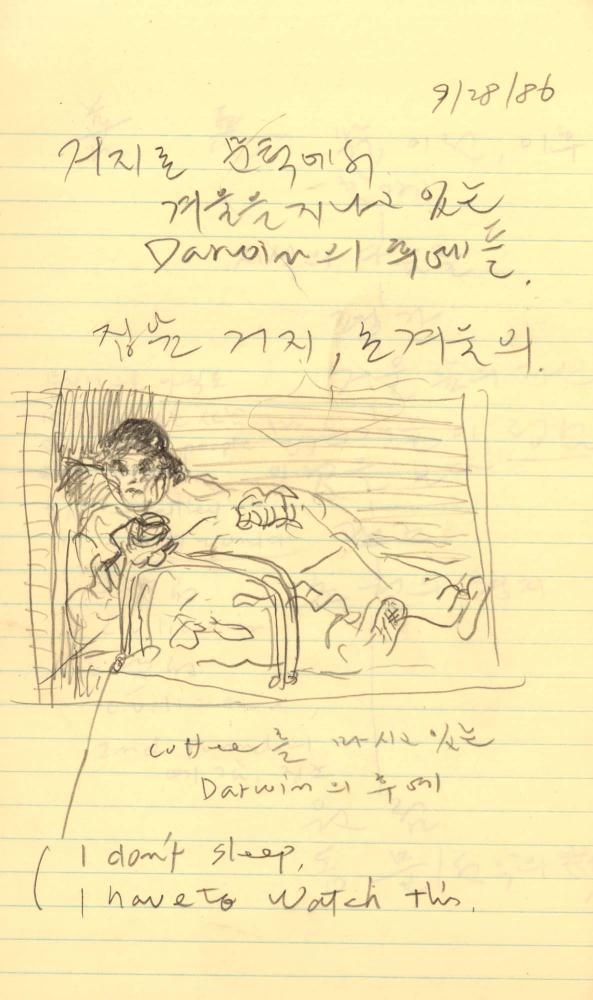 9/28/86
거지로 문턱에서
겨울을 지나고 있는
Darwin의 후예들.
젊은 거지, 초겨울의.
coffee를 마시고 있는
Darwin의 후예
( I don't sleep,
I have to watch this.